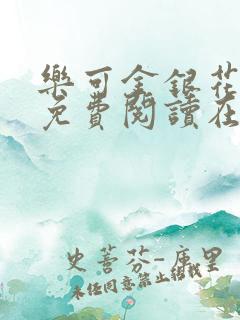 樂可金銀花
免費閱讀在
史蒂芬-庫里
未任同意禁止轉載